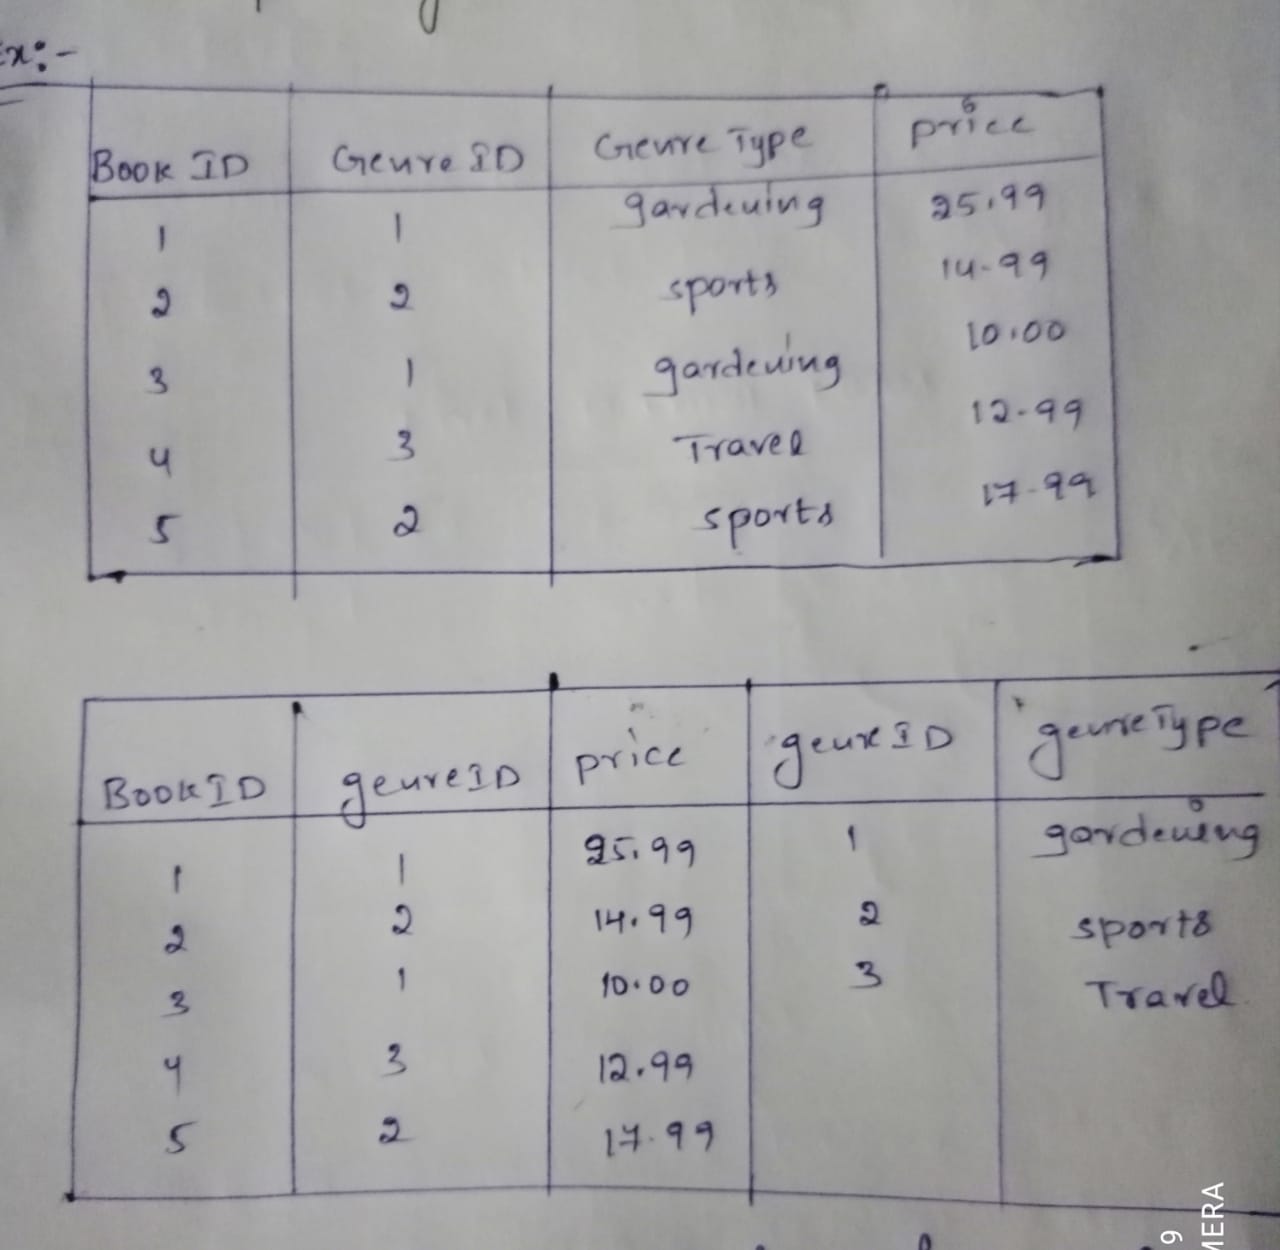 Ex:-
Book ID Genre ID Genre Type price
1 1 gardening 25.99
2 2 sports 14.99
3 1 gardening 10.00
4 3 Travel 12.99
5 2 sports 17.99
Book ID genre ID price genre ID genre Type
1 1 25.99 1 gardening
2 2 14.99 2 sports
3 1 10.00 3 Travel
4 3 12.99
5 2 17.99
9
MERA